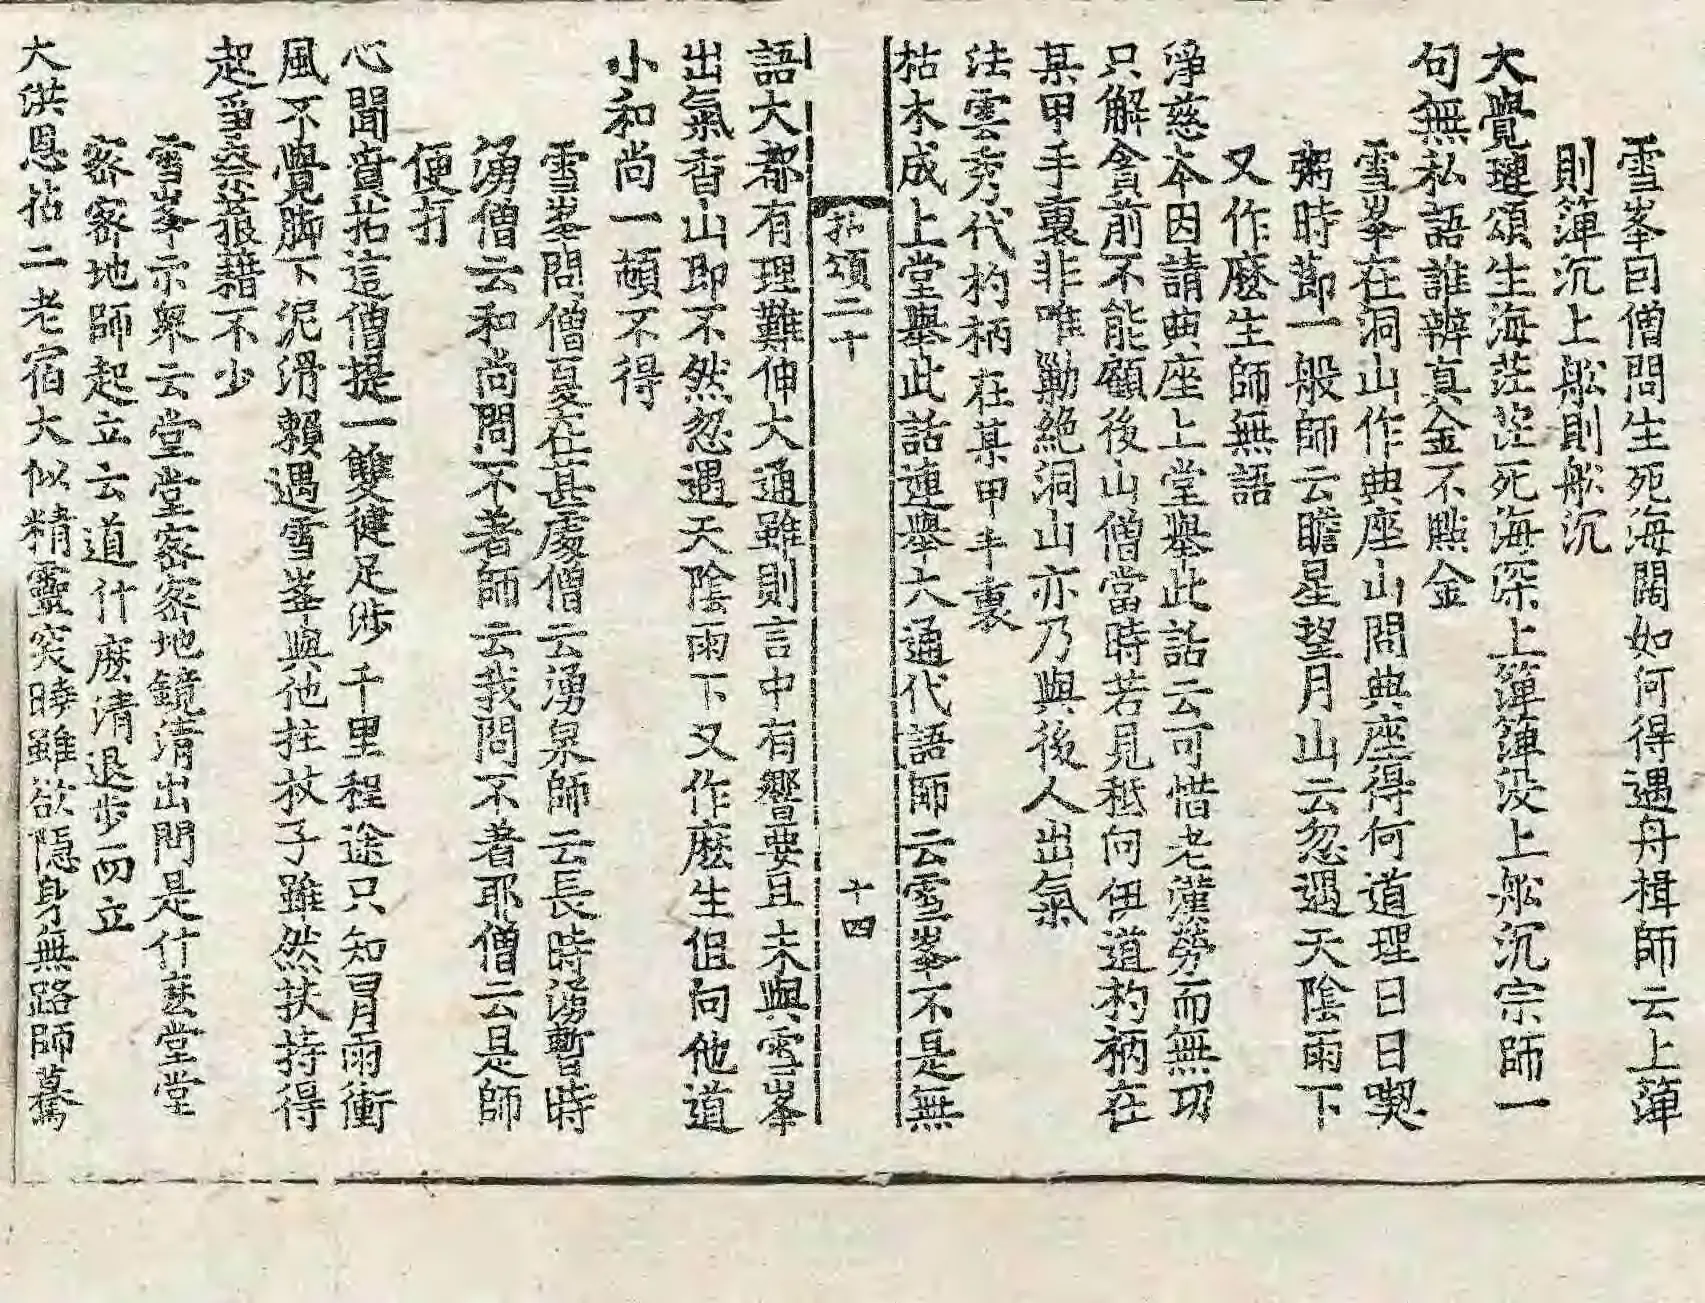 雪峯因僧問生死海闊如何得遇舟楫師云上簰
則簰沉上舩則舩沉
大覺璉頌生海茫茫死海深上簰簰没上舩沉宗師一
句無私語誰辨真金不點金
雪峯在洞山作典座山問典座得何道理日日喫
粥時莭一般師云瞻星望月山云忽遇天陰雨下
又作麽生師無語
淨慈本因請典座上堂舉此話云可惜老漢勞而無功
只解貪前不能顧後山僧當時若見秖向伊道杓柄在
某甲手裏非唯勦絶洞山亦乃與後人出氣
法雲秀代杓柄在某甲手裏
枯木成上堂舉此話連舉大通代語師云雪峯不是無
拈頌二十
十四
語大都有理難伸大通雖則言中有響要且未與雪峯
出氣香山即不然忽遇天陰雨下又作麽生但向他道
小和尚一頓不得
雪峯問僧夏在甚處僧云湧泉師云長時湧暫時
湧僧云和尚問不著師云我問不著耶僧云是師
便打
心聞賁拈這僧提一雙健足涉千里程途只知冒雨衝
風不覺脚下泥滑賴遇雪峯與他拄杖子雖然扶持得
起爭柰狼藉不少
雪峯示衆云堂堂密密地鏡清出問是什麽堂堂
密密地師起立云道什麽清退步而立
大洪恩拈二老宿大似精靈突曉雖欲隱身無路師驀